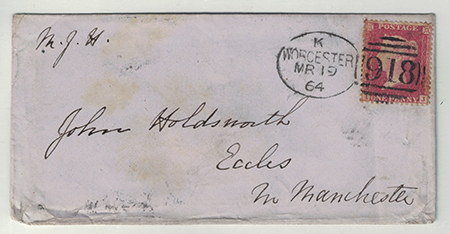 M. J. H.
K
WORCESTER
MR 19
64
POSTAGE
918
John Holdsworth
Eccles
Nr Manchester